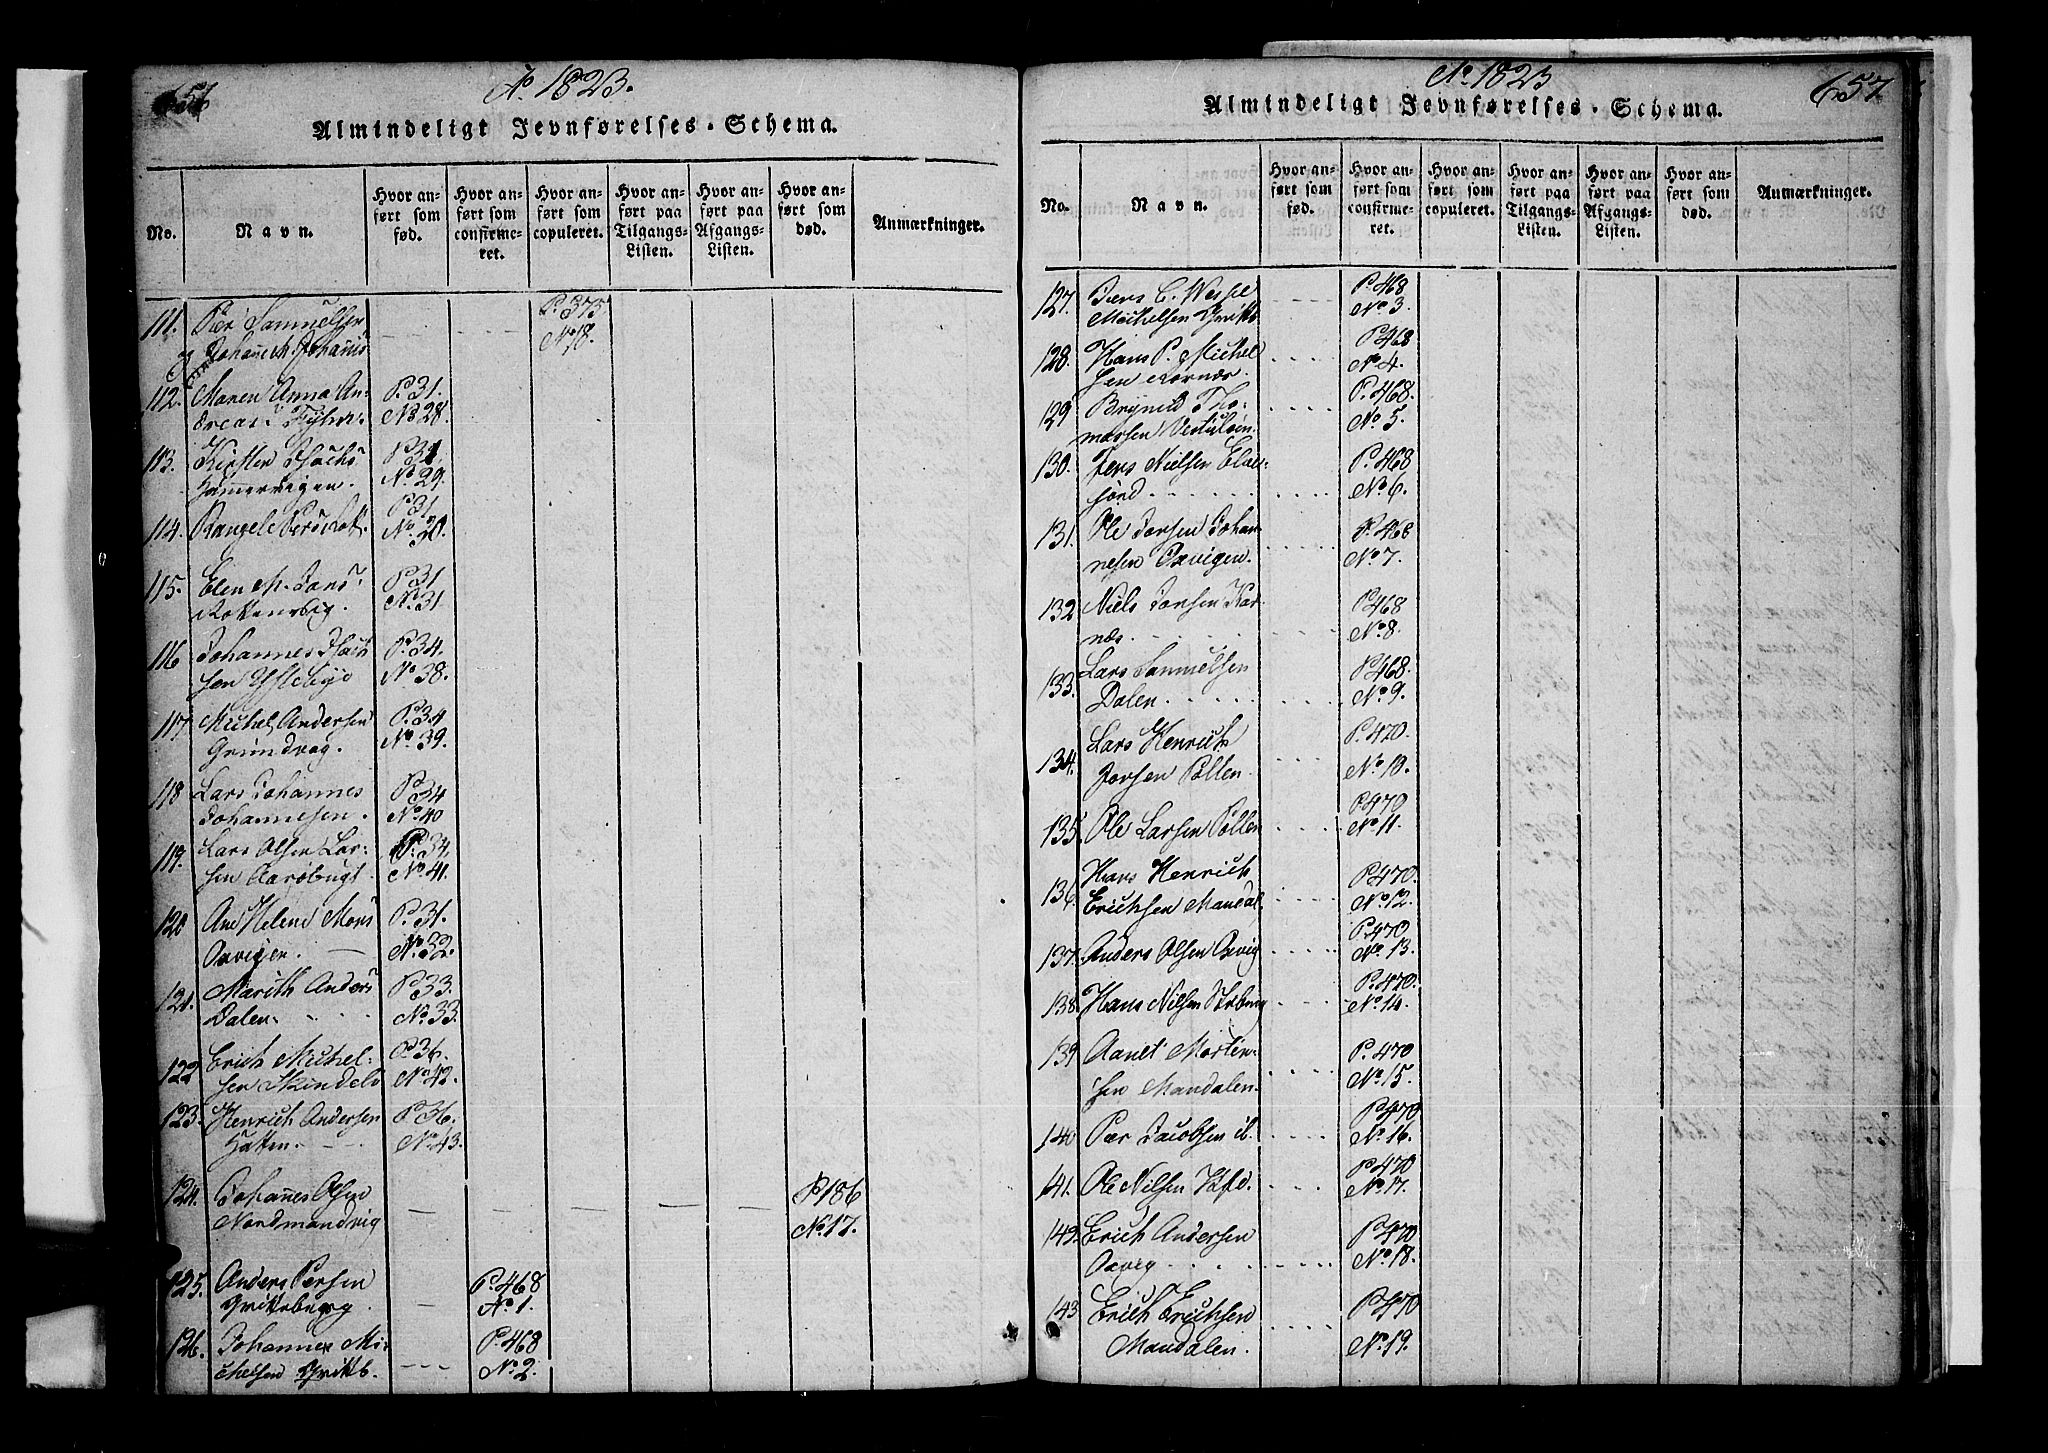 656
Ao 1823.
Almindeligt Jevnførelses-Schema.
No.
Navn.
Hvor anført som fød.
Hvor anført som confirmeret.
Hvor anført som copuleret.
Hvor anført paa Tilgangs-Listen.
Hvor anført paa Afgangs-Listen.
Hvor anført som død.
Anmærkninger.
111. Peer Samuelsen P. 373
Johanes No 18.
112. Maren Anna An- P. 31.
dreas: No 28.
113. Kirsten Isachs P. 31
Hamervigen. No. 29.
114. Rangele Pers P. 31
No. 30.
115. Elen M. Jans P. 31
No. 31
116 Johannes Isach P. 34.
sen No. 38.
117 Michel Andersen P. 34
No. 39.
118 Lars Johannes P. 34
Johannesen. No. 40
119. Lars Olsen Lar- P. 34.
sen Aarøbugt No. 41.
120 Ane Helene Mons P. 31.
Oxvigen. No. 32.
121. Marith Anders P. 33.
Dalen. No. 33.
122 Erich Michel- P. 36.
sen No. 42.
123. Henrich Andersen P. 36.
Hatten. No. 43.
124. Johanes Olsen P 186
Nordmandvig No. 17.
125. Anders Persen P. 468
No. 1.
126. Johannes Mi- P. 468
chelsen No. 2.
No. 1823
657.
Almindeligt Jevnførelses-Schema.
No.
Navn.
Hvor anført som fød.
Hvor anført som confirmeret.
Hvor anført som copuleret.
Hvor anført paa Tilgangs-Listen.
Hvor anført paa Afgangs-Listen.
Hvor anført som død.
Anmærkninger.
127. Jens C. P. 468
Michelsen No. 3.
128. Hans P. Michel P. 468
sen No. 4.
129 Tho- P. 468.
massen No. 5.
130. Jens Nielsen P. 468
No. 6.
131. Ole Jonsen Johan P. 468
nesen Oxvigen. No. 7.
132 Niels Jonsen Kor P. 468
næs. No. 8.
133. Lars Samuelsen P. 468.
Dalen. No. 9.
134. Lars Henrich P. 470.
Jonsen Pollen. No. 10.
135. Ole Larsen Pollen P. 470
No. 11.
136. Hans Henrich P. 470.
Erichsen Mandal No. 12.
137. Anders Olsen Oxvig P. 470
No. 13.
138. Hans Nilsen P. 470.
No. 14.
139 Morten- P. 470
sen Mandalen. No. 15.
140 Peer Jacobsen ib. P. 470
No. 16.
141. Ole Nilsen P. 470
No. 17.
Erich Andersen P. 470
Oxvig No. 18.
143 Erich Erichsen P. 470
Mandalen. No. 19.